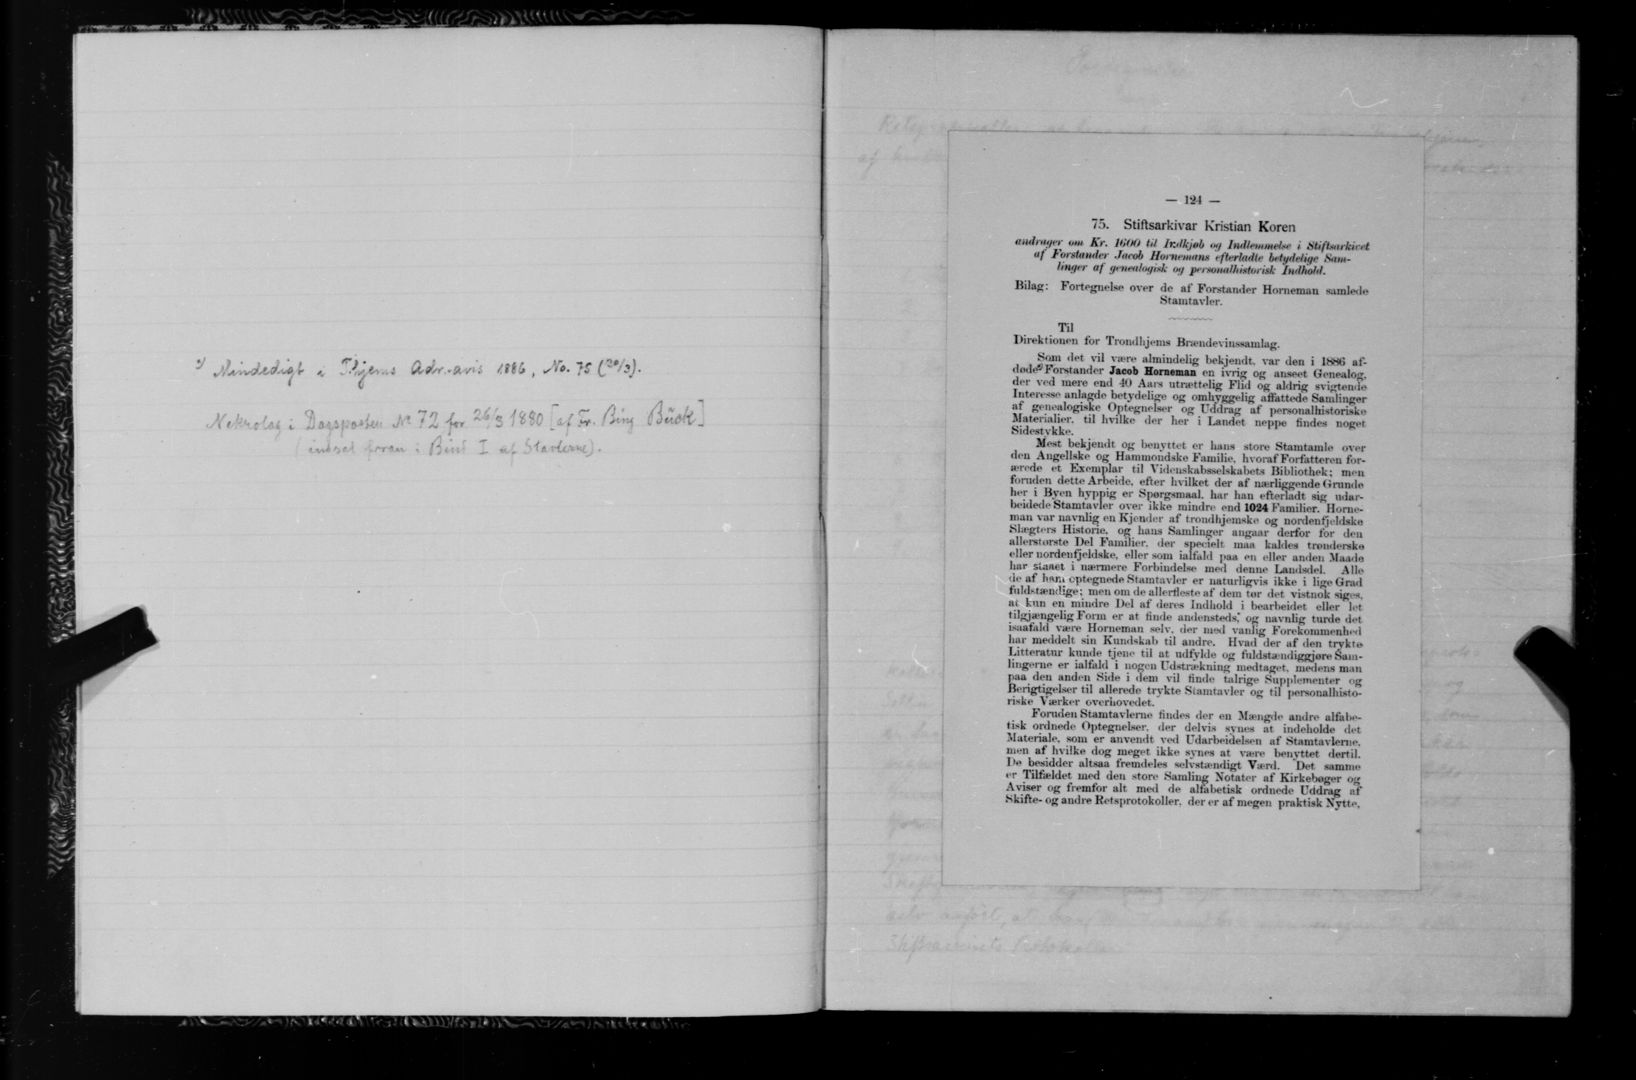 *) Mindedigt i Thjems Adr.-avis 1886, No. 75 (30/3).
Nekrolog i Dagsposten No 72 for 26/3 1880 [af Fr. Bing Bück]
(indsat foran i Bind I af Stavlerne).
— 124 —
75. Stiftsarkivar Kristian Koren
andrager om Kr. 1600 til Indkjøb og Indlemmelse i Stiftsarkivet
af Forstander Jacob Hornemans efterladte betydelige Sam-
linger af genealogisk og personalhistorisk Indhold.
Bilag: Fortegnelse over de af Forstander Horneman samlede
Stamtavler.
Til
Direktionen for Trondhjems Brændevinssamlag.
Som det vil være almindelig bekjendt, var den i 1886 af-
døde Forstander Jacob Horneman en ivrig og anseet Genealog,
der ved mere end 40 Aars utrættelig Flid og aldrig svigtende
Interesse anlagde betydelige og omhyggelig affattede Samlinger
af genealogiske Optegnelser og Uddrag af personalhistoriske
Materialier, til hvilke der her i Landet neppe findes noget
Sidestykke.
Mest bekjendt og benyttet er hans store Stamtamle over
den Angellske og Hammondske Familie, hvoraf Forfatteren for-
ærede et Exemplar til Videnskabsselskabets Bibliothek; men
foruden dette Arbeide, efter hvilket der af nærliggende Grunde
her i Byen hyppig er Spørgsmaal, har han efterladt sig udar-
beidede Stamtavler over ikke mindre end 1024 Familier. Horne-
man var navnlig en Kjender af trondhjemske og nordenfjeldske
Slægters Historie, og hans Samlinger angaar derfor for den
allerstørste Del Familier, der specielt maa kaldes trønderske
eller nordenfjeldske, eller som ialfald paa en eller anden Maade
har staaet i nærmere Forbindelse med denne Landsdel. Alle
de af ham optegnede Stamtavler er naturligvis ikke i lige Grad
fuldstændige; men om de allerfleste af dem tør det vistnok siges,
at kun en mindre Del af deres Indhold i bearbeidet eller let
tilgjængelig Form er at finde andensteds, og navnlig turde det
isaafald være Horneman selv, der med vanlig Forekommenhed
har meddelt sin Kundskab til andre. Hvad der af den trykte
Litteratur kunde tjene til at udfylde og fuldstændiggjøre Sam-
lingerne er ialfald i nogen Udstrækning medtaget, medens man
paa den anden Side i dem vil finde talrige Supplementer og
Berigtigelser til allerede trykte Stamtavler og til personalhisto-
riske Værker overhovedet.
Foruden Stamtavlerne findes der en Mængde andre alfabe-
tisk ordnede Optegnelser, der delvis synes at indeholde det
Materiale, som er anvendt ved Udarbeidelsen af Stamtavlerne,
men af hvilke dog meget ikke synes at være benyttet dertil.
De besidder altsaa fremdeles selvstændigt Værd. Det samme
er Tilfældet med den store Samling Notater af Kirkebøger og
Aviser og fremfor alt med de alfabetisk ordnede Uddrag af
Skifte- og andre Retsprotokoller, der er af megen praktisk Nytte,